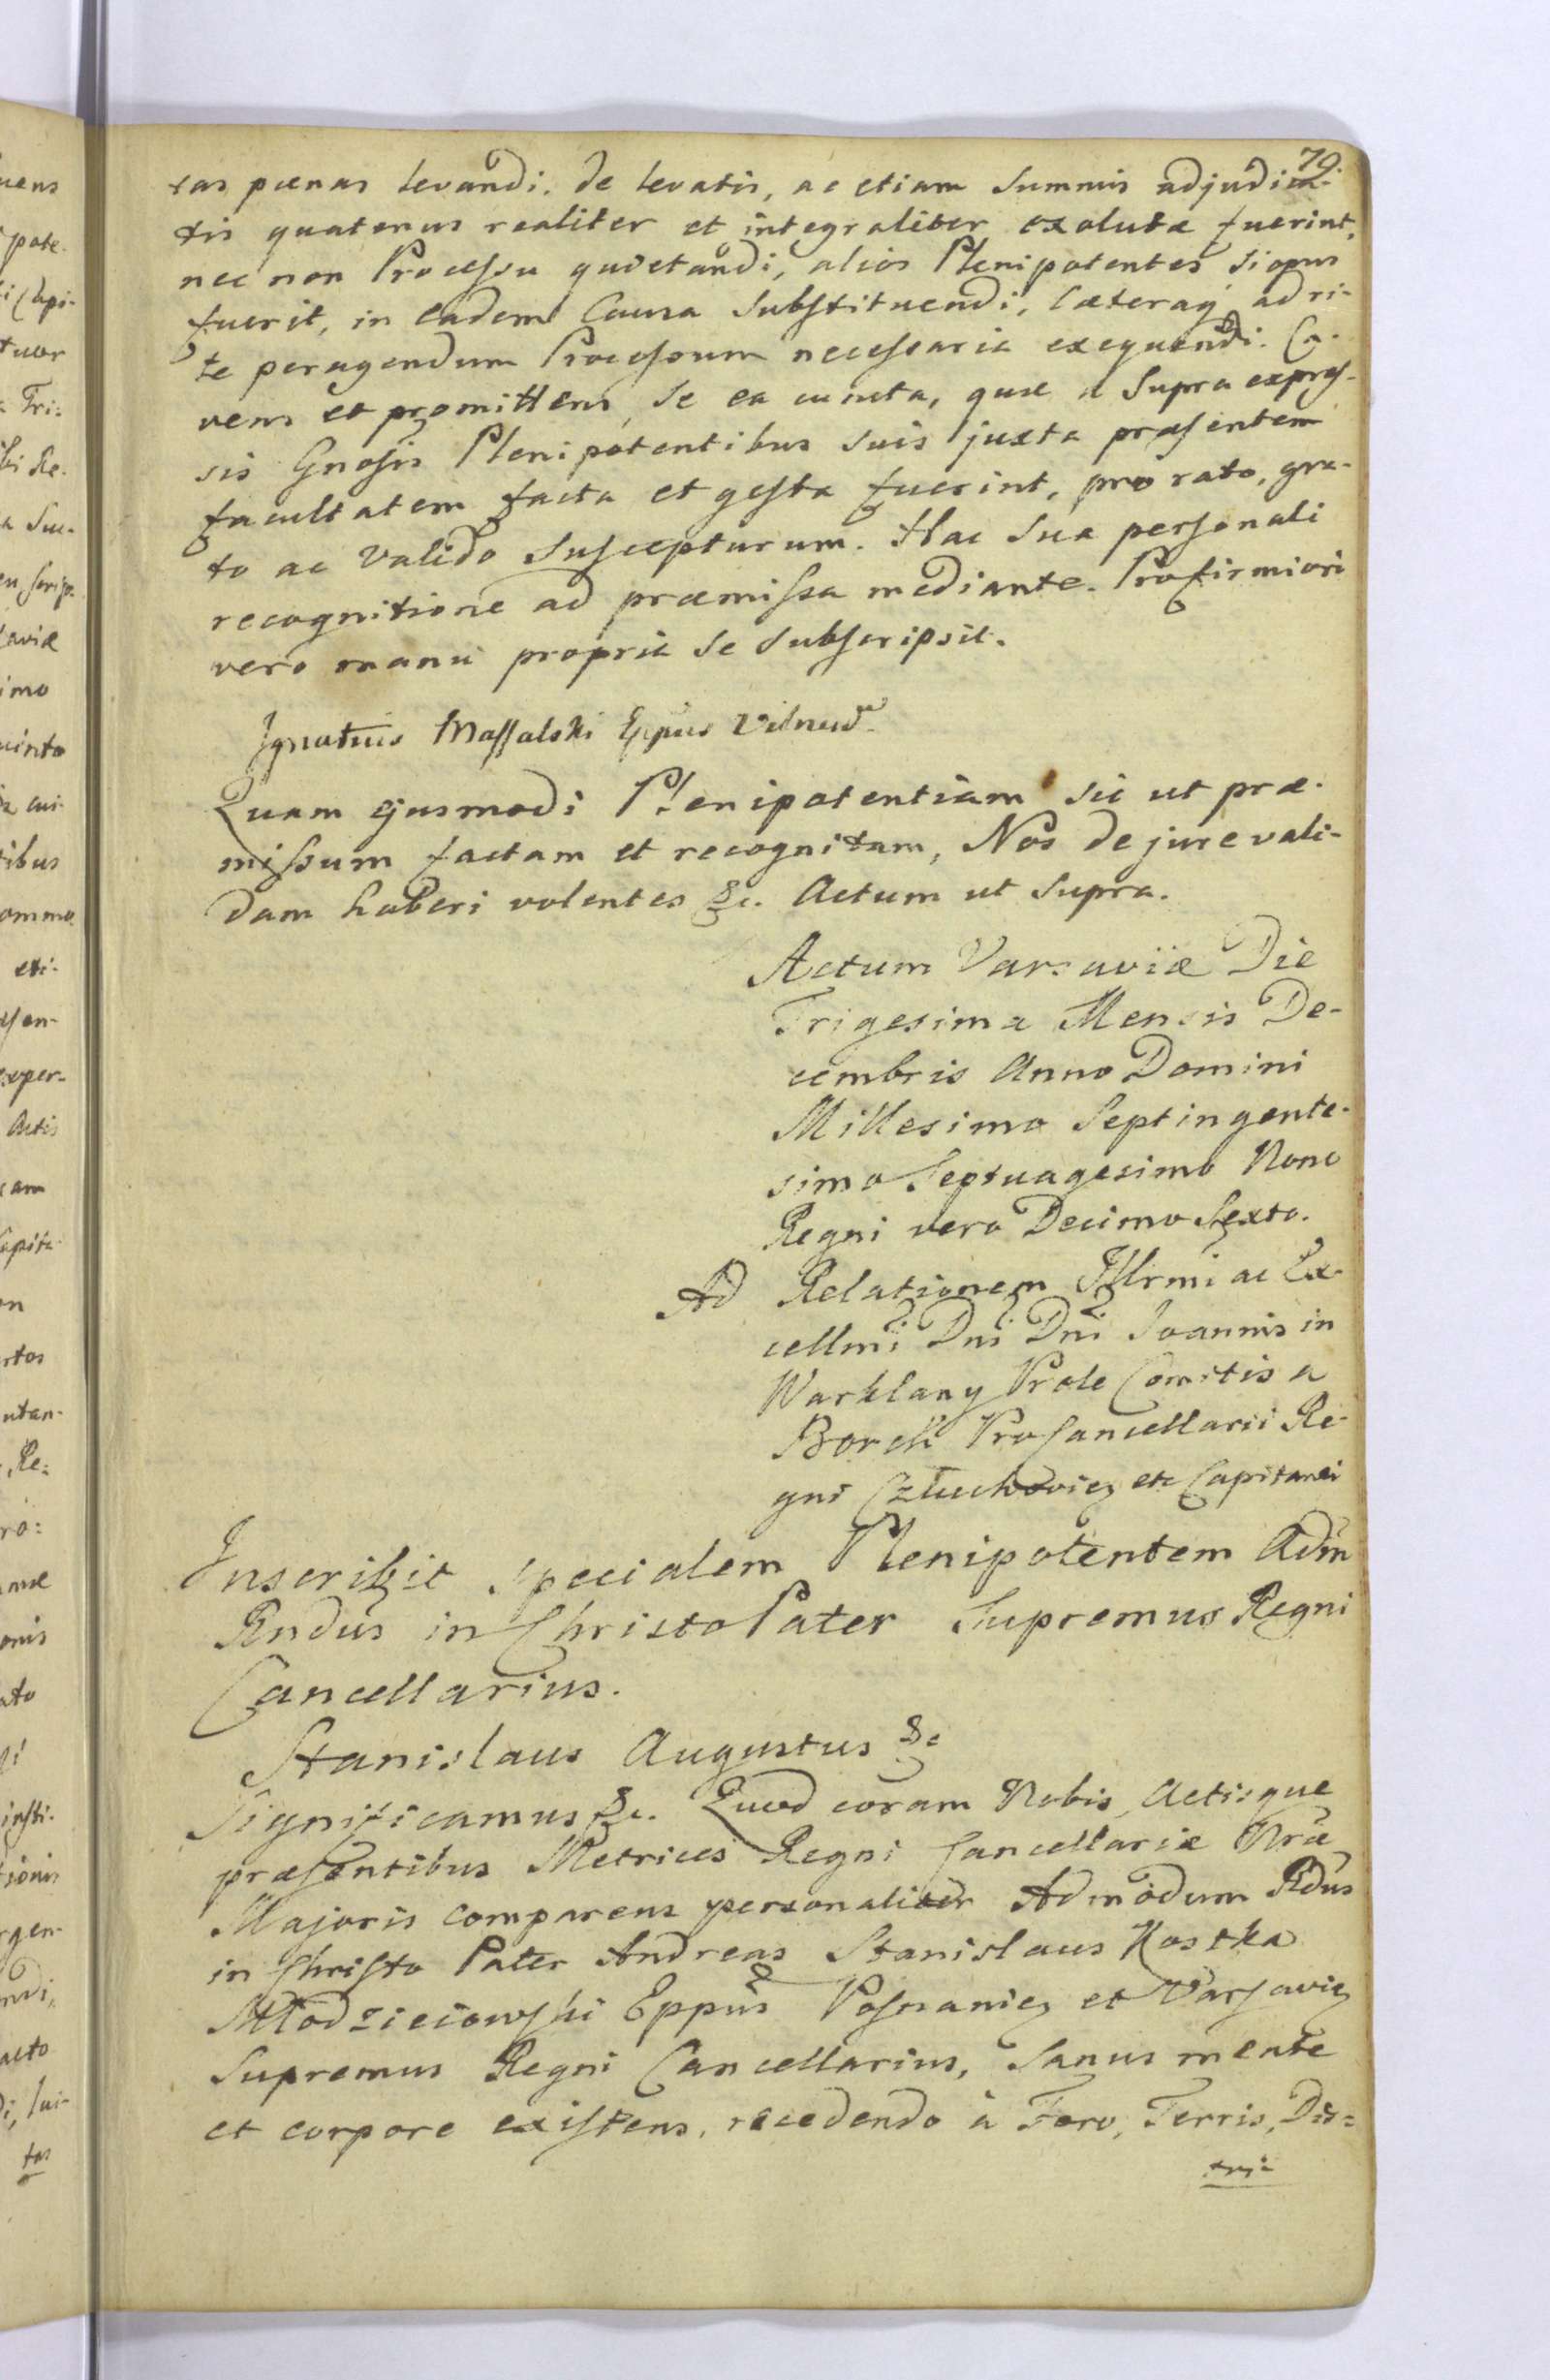 79.
tas pœnas levandi. de levatis, ac etiam summis adjudica-
tis quatenus realiter et integraliter exolutæ fuerint,
nec non Processu quietandi, alios Plenipotentes si opus
fuerit, in eadem Causa substituendi, Cæteraq ad ri-
te peragendum Processum necessaria exequendi. Ca-
vens et promittens, se ea cuncta, quæ a supra expres-
sis Gnosis Plenipotentibus suis juxta præsentem
facultatem facta et gesta fuerint, pro rato, gra-
to ac valido suscepturum. Hac sua personali
recognitione ad præmissa mediante. Pro firmiori
vero manu propria se subscripsit.
Ignatius Massalski Eppus Vilnen
Quam ejusmodi Plenipotentiam sic ut præ-
missum factam et recognitam, Nos de jure vali-
dam haberi volentes &c. Actum ut supra.
Actum Varsaviæ Die
Trigesima Mensis De-
cembris Anno Domini
Millesimo Septingente-
simo Septuagesimo Nono
Regni vero Decimo Sexto.
Ad Relationem Illrmi ac Ex-
cellmi Dni Dni Joannis in
Warklany Prole Comitis a
Borch ProCancellarii Re-
gni Człuchovien etc Capitanei
Inscribit specialem Plenipotentem Adm
Rndus in Christo Pater Supremus Regni
Cancellarius.
Stanislaus Augustus &c
Significamus &c. Quod coram Nobis, Actisque
præsentibus Metrices Regni Cancellariæ Nræ
Majoris comparens personaliter Admodum Rdus
in Christo Pater Andreas Stanislaus Kostka
Młodzieiowski Eppus Posnanien et Varsavien
Supremus Regni Cancellarius, Sanus mente
et corpore existens, recedendo à Foro, Terris, Dis=
tri=